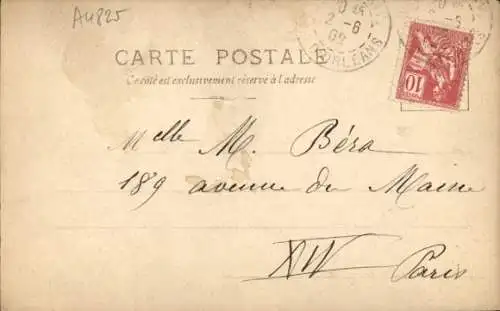 A4825
CARTE POSTALE
Ce côté est exclusivement réservé à l'adresse
Melle M. Béra
189 avenue du Maine
XIV
Paris
2-6
ORLEANS
10